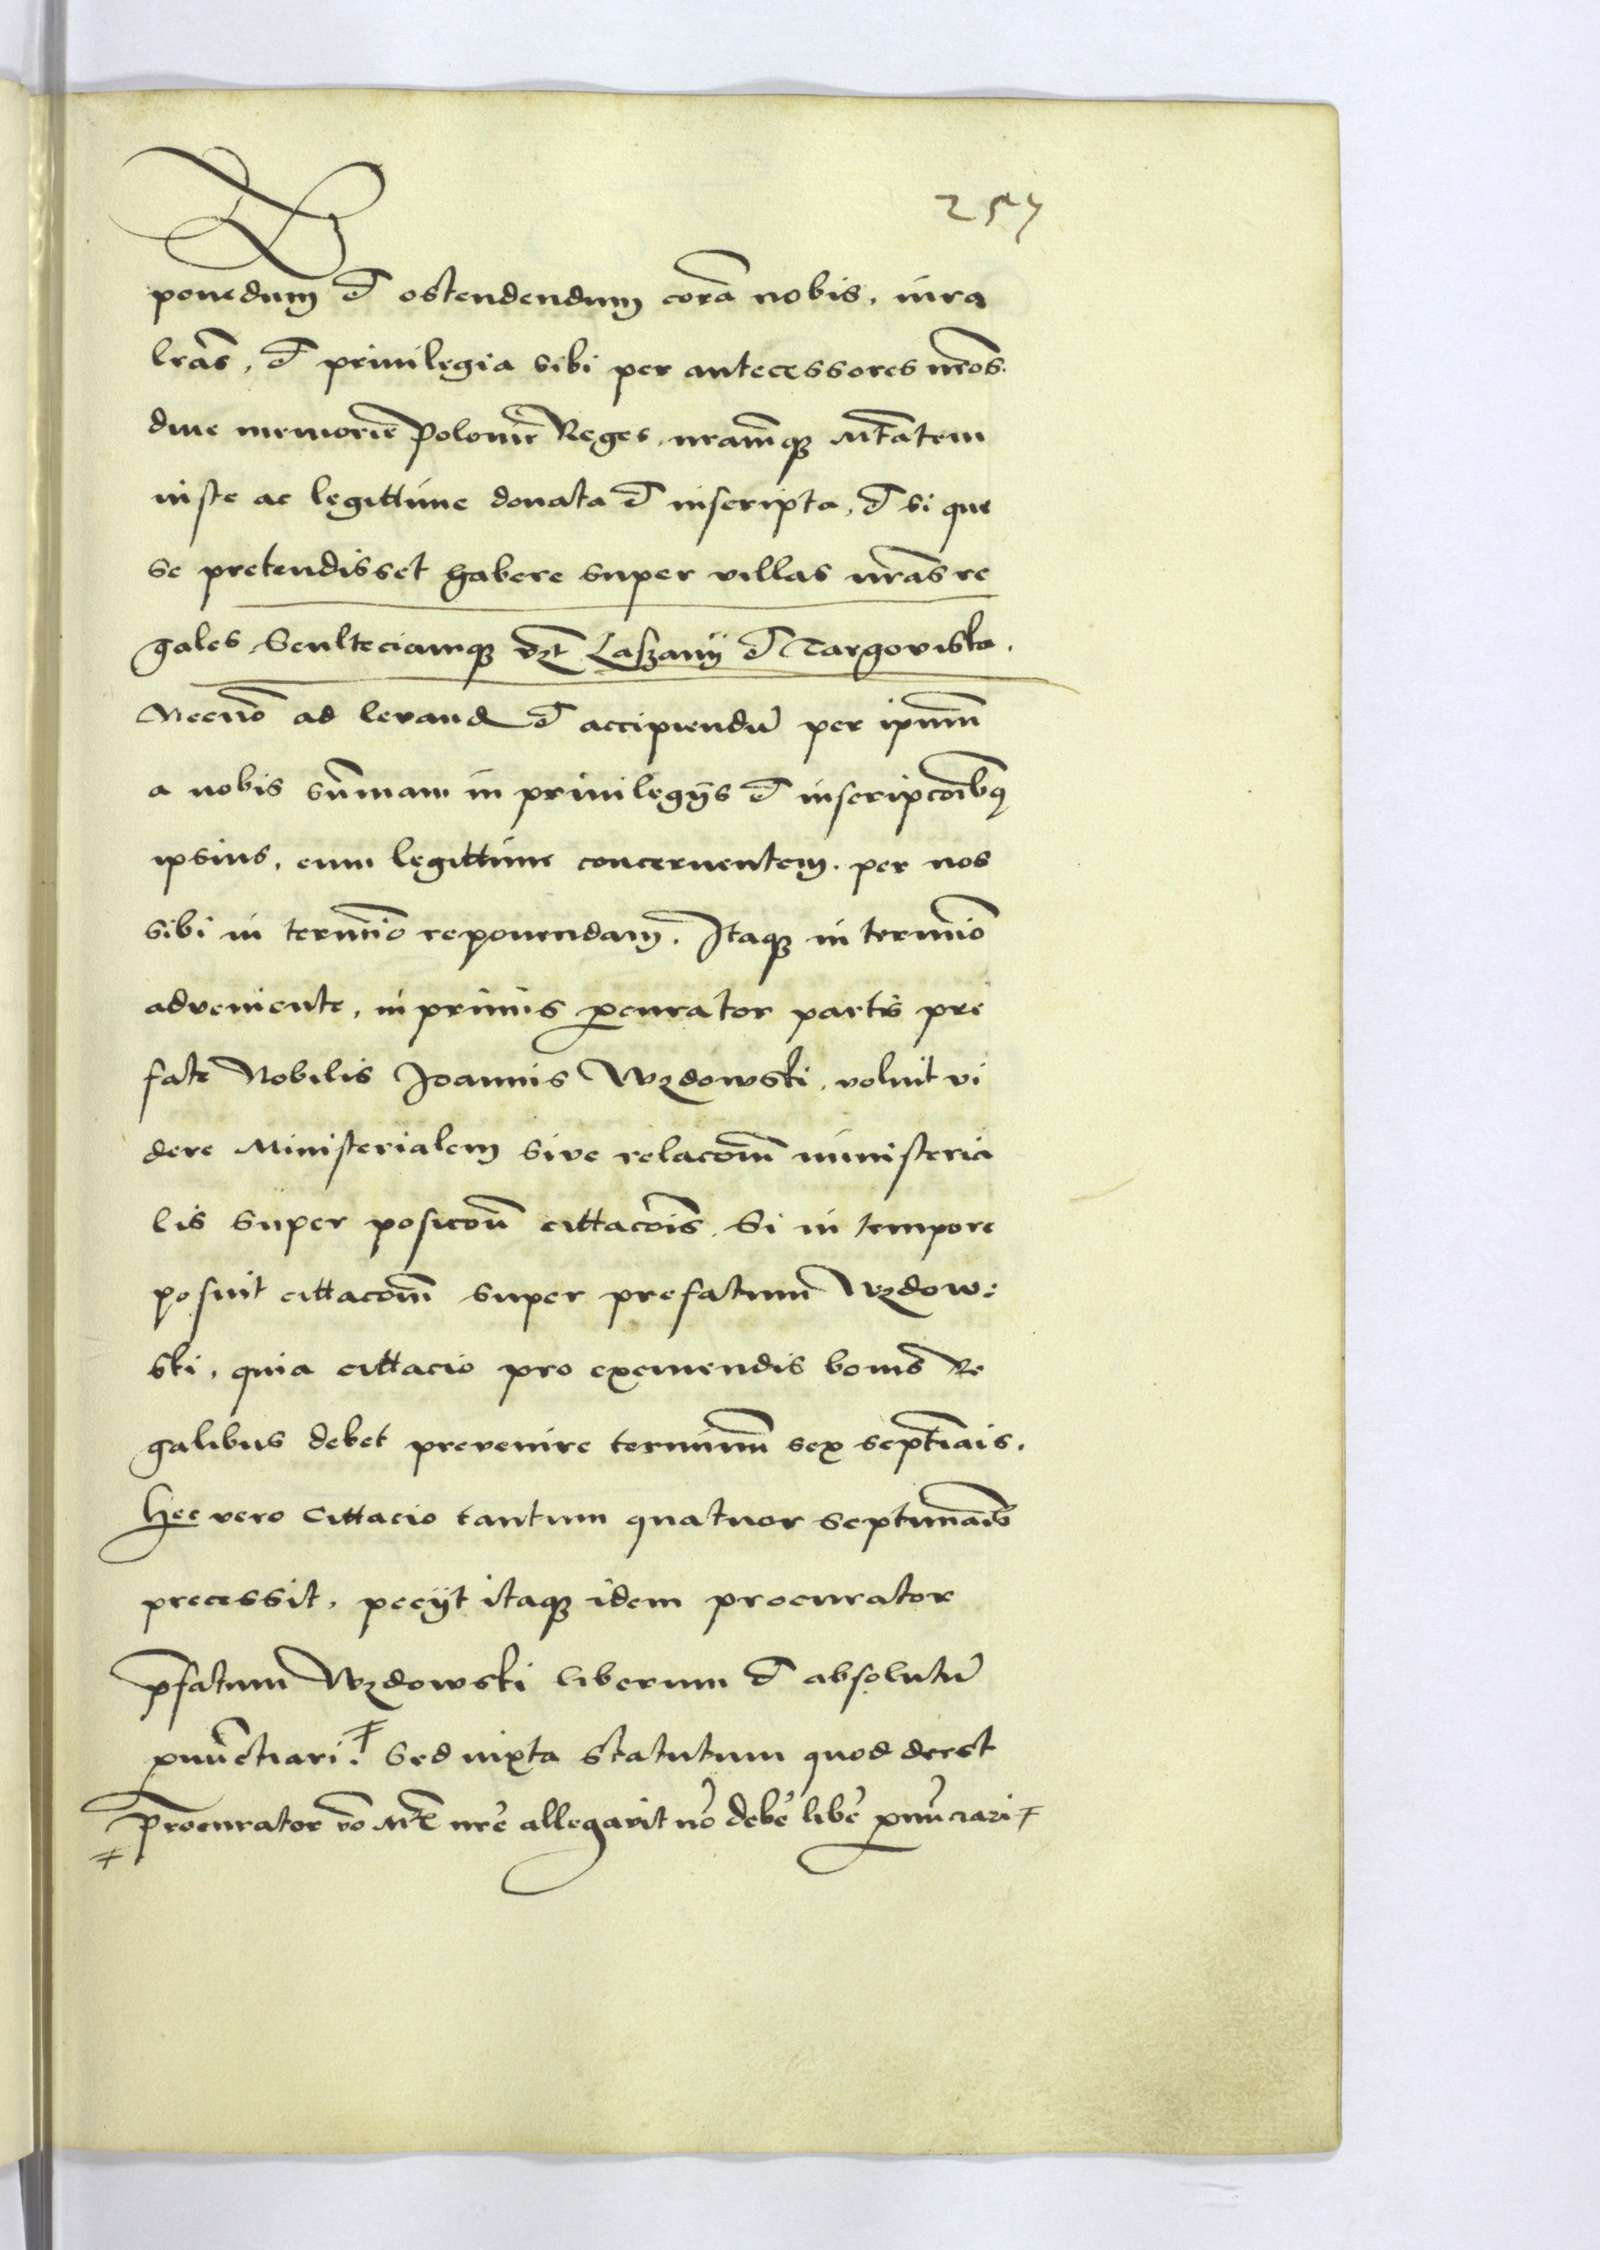 257
ponedum et ostendendum corã nobis, iura
lrãs, et priuilegia sibi per antecessores nrõs.
diue memorie Polonie Reges, nramq̃ Mtãtem
iuste ac legittime donata et inscripta, et si que
se pretendisset habere super villas nrãs re
gales Sculteciamq̃ vzt Laszany et Targoviska.
Necnõ ad levand et accipiendũ per ipm̃
a nobis sum̃am in priuilegijs et inscripcõibq
ipsius, eum legittime concernentem. per nos
sibi in termĩo reponendam. Itaq̃ in termĩo
adveniente, in primis p̱curator partis pre
fate Nobilis Joannis Wzdowski, voluit vi
dere Ministerialem sive relacõm ministeria
lis super posicoñ cittacõis. Si in tempore
posuit cittacõm super prefatum Wzdow:
ski, quia cittacio pro exemendis bonis Re
galibus debet prevenire terminũ sex septĩais.
Hec vero cittacio tantum quatuor septimãis
precessit, pecijt itaq̃ idem procurator
p̃fatum Wzdowski liberum et absolutũ
p̱nũctiari. ‡ Sed iuxta statutum quod dr̃et
Procurator vo Mt̃e nrẽ allegavit nõ debẽ libẽ p̱nũciari ‡
‡